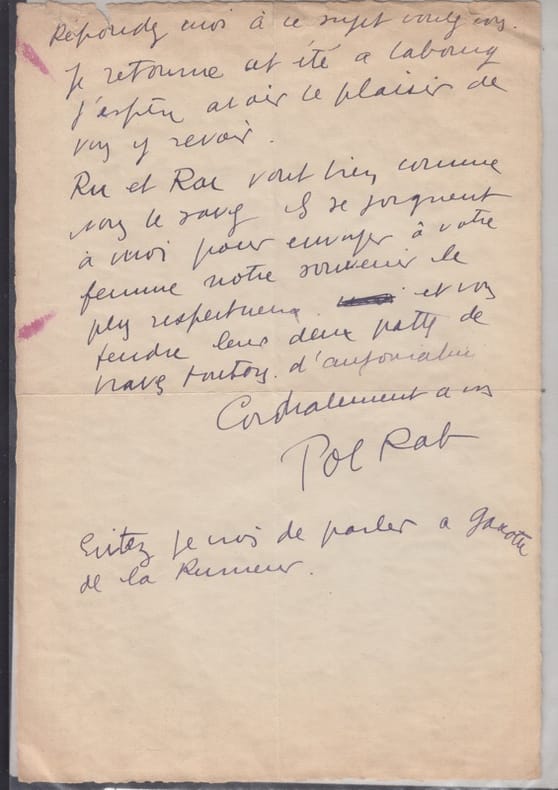 Répondez moi à ce sujet voulez vous.
Je retourne cet été a Cabourg
j'espère avoir le plaisir de
vous y revoir.
Ric et Rac vont bien comme
vous le savez ils se joignent
à moi pour envoyer à votre
femme notre souvenir le
plus respectueux et vous
tendre leur deux pattes de
braves toutous
Cordialement a vous
Pol Rab
Evitez je vois de parler a Gaxotte
de la Rumeur.